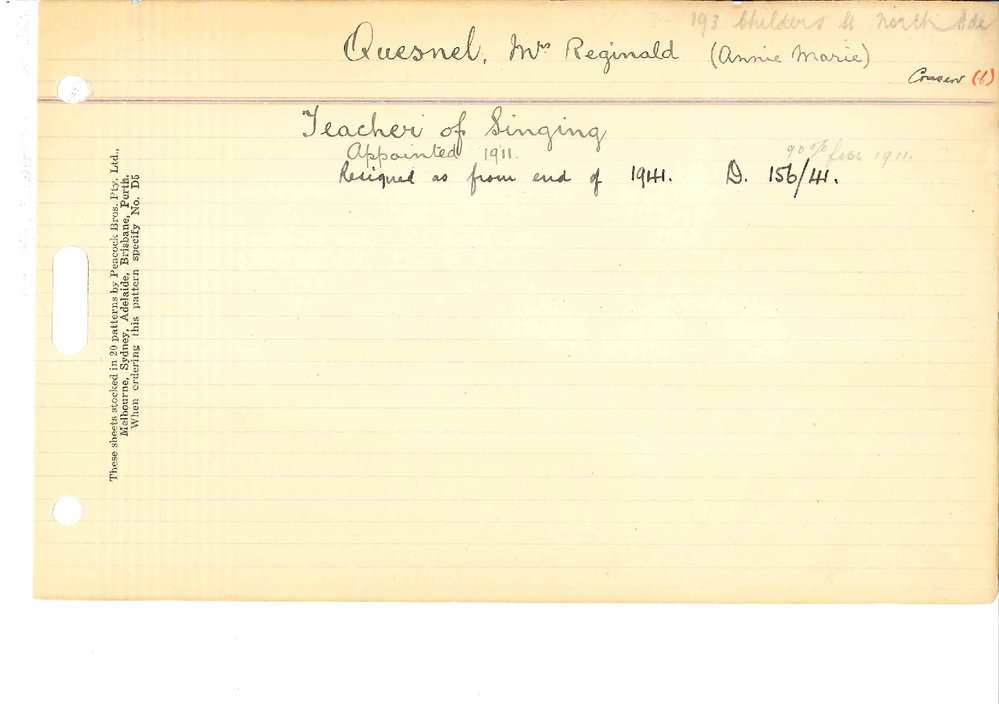 193 Childers St North Ade
Quesnel, Mrs Reginald (Annie Marie)
Conserv (6)
Teacher of Singing
Appointed 1911.
90% fees 1911.
Resigned as from end of 1941. D. 156/41.
These sheets stocked in 20 patterns by Peacock Bros. Pty. Ltd.,
Melbourne, Sydney, Adelaide, Brisbane, Perth.
When ordering this pattern specify No. D5